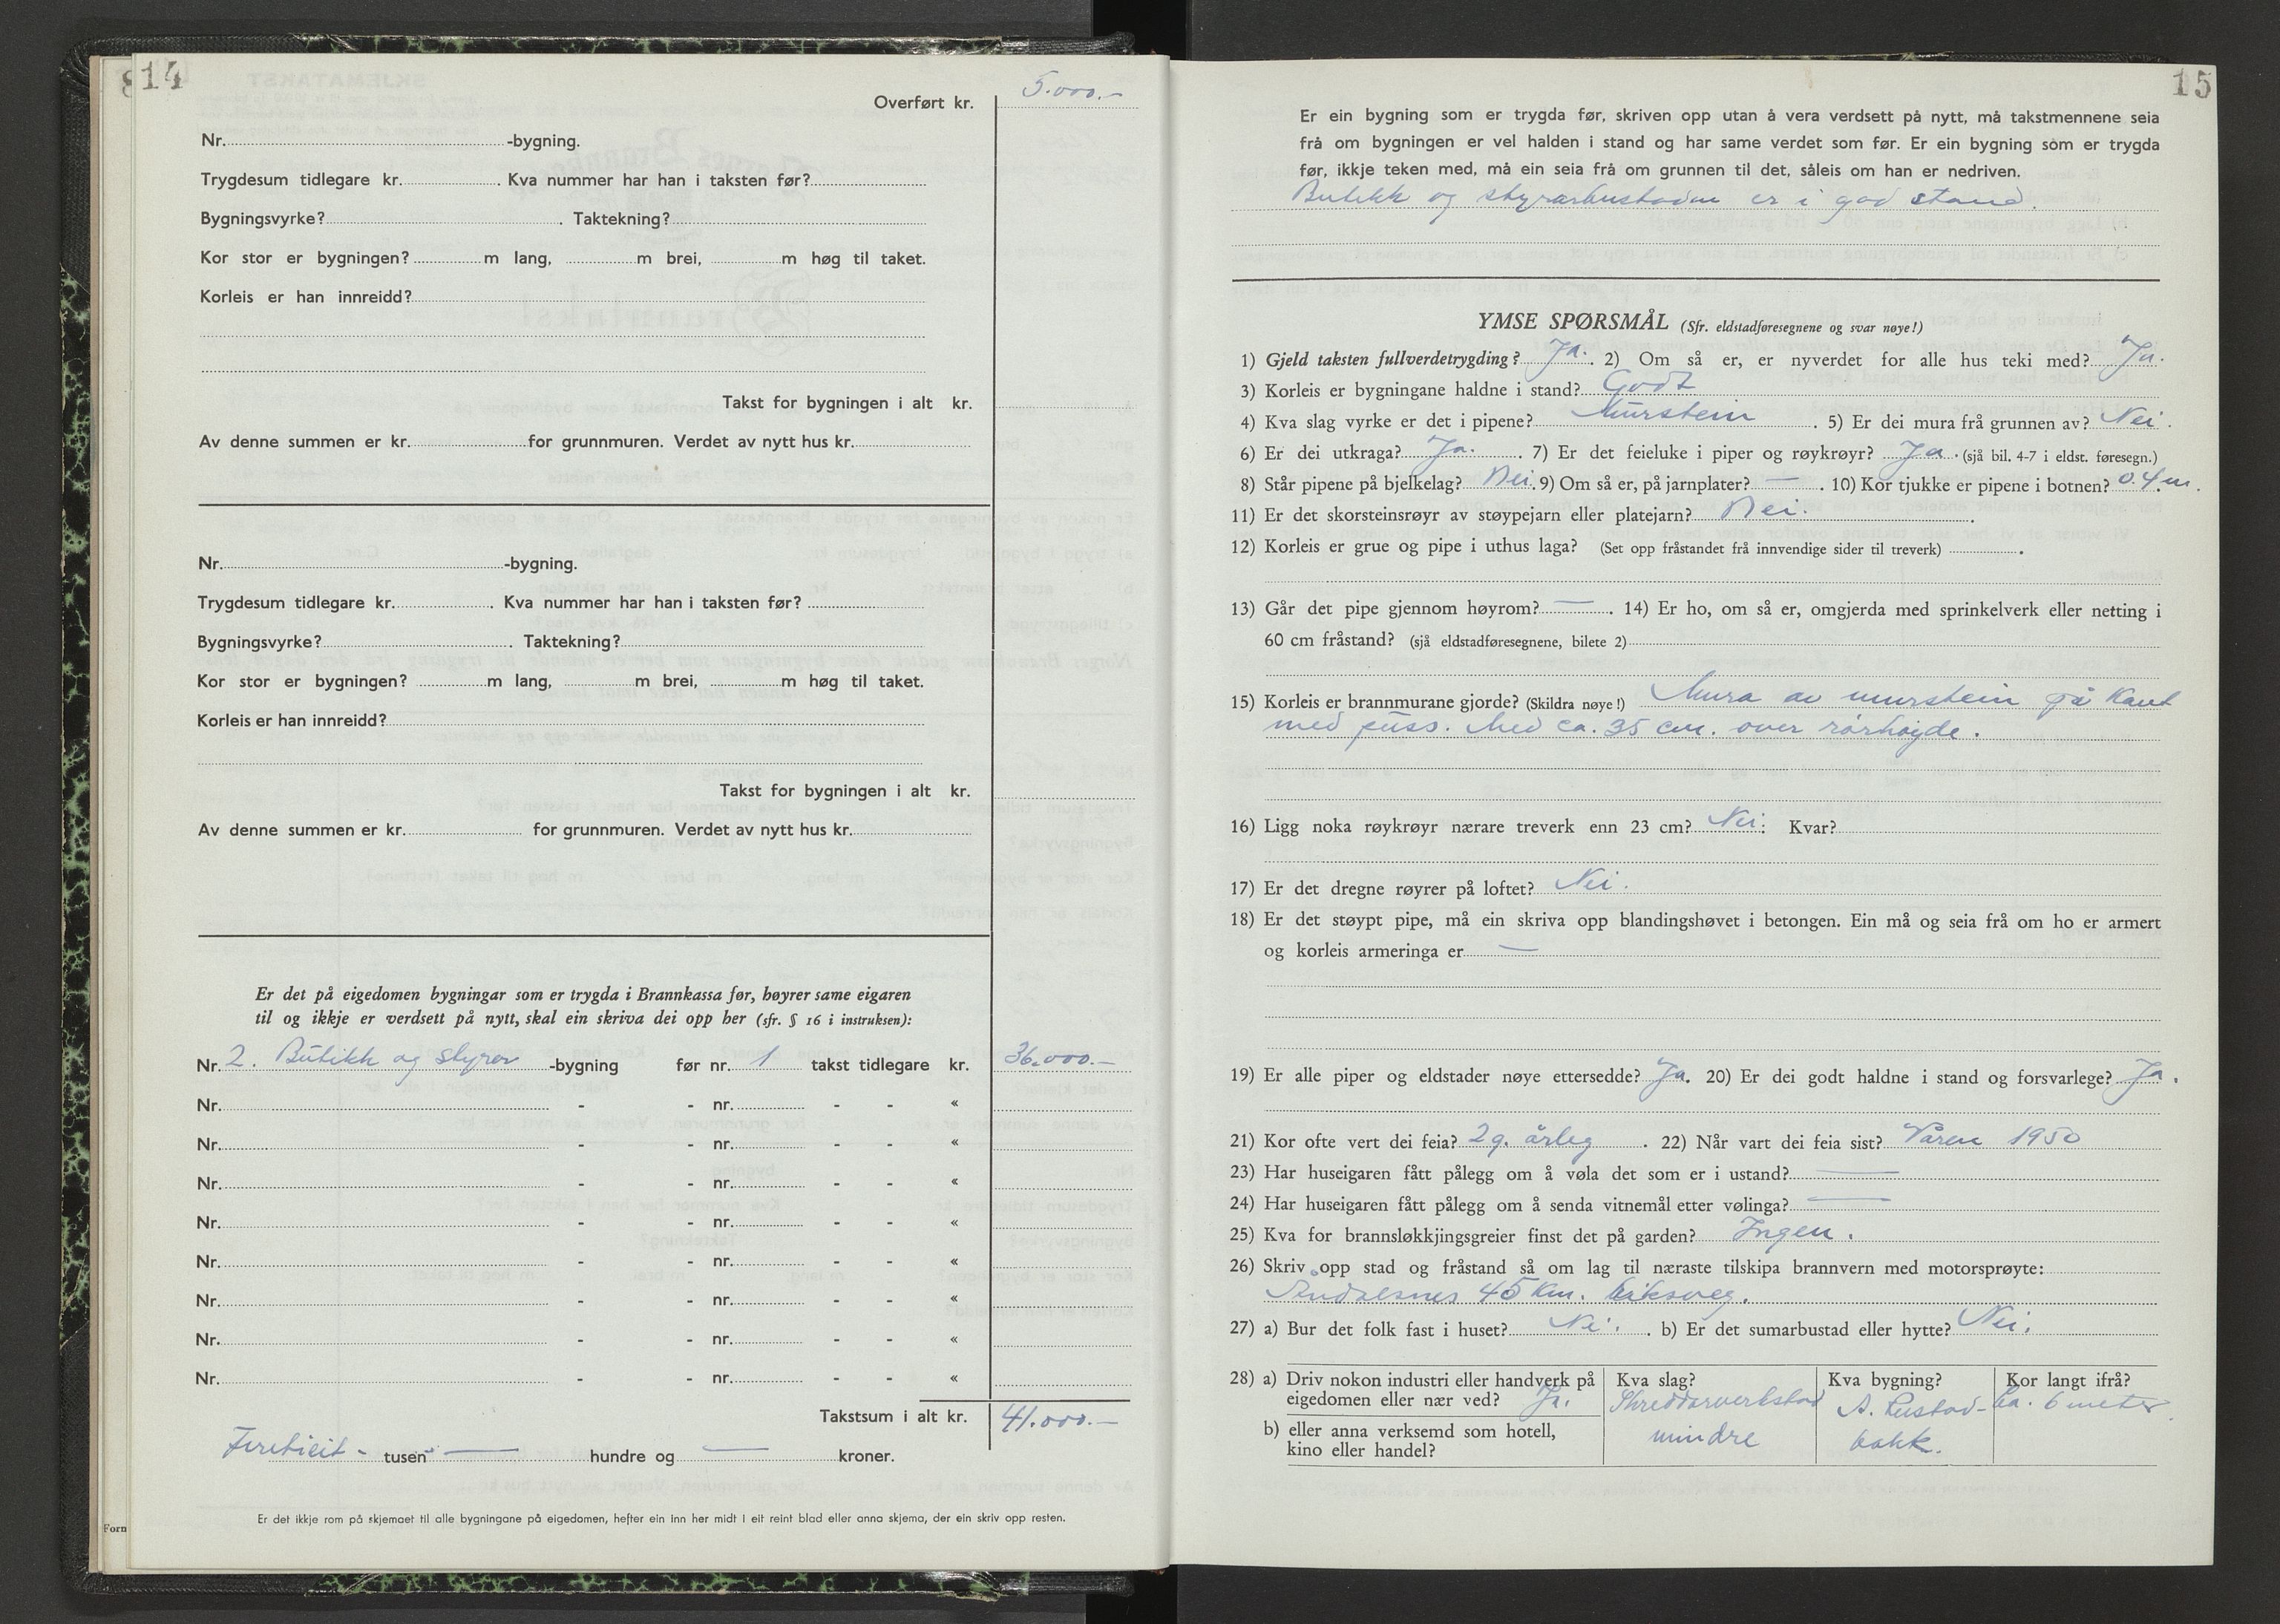 14
Overført kr. 5.000.-
Nr. -bygning.
Trygdesum tidlegare kr. . Kva nummer har han i taksten før?
Bygningsvyrke? . Taktekning?
Kor stor er bygningen? m lang, m brei, m høg til taket.
Korleis er han innreidd?
Takst for bygningen i alt kr.
Av denne summen er kr. for grunnmuren. Verdet av nytt hus kr.
Nr. -bygning.
Trygdesum tidlegare kr. . Kva nummer har han i taksten før?
Bygningsvyrke? . Taktekning?
Kor stor er bygningen? m lang, m brei, m høg til taket.
Korleis er han innreidd?
Takst for bygningen i alt kr.
Av denne summen er kr. for grunnmuren. Verdet av nytt hus kr.
Er det på eigedomen bygningar som er trygda i Brannkassa før, høyrer same eigaren
til og ikkje er verdsett på nytt, skal ein skriva dei opp her (sfr. § 16 i instruksen):
Nr. 2. Butikk og styrar -bygning før nr. 1 takst tidlegare kr. 36.000.-
Nr. - - nr. - - «
Nr. - - nr. - - «
Nr. - - nr. - - «
Nr. - - nr. - - «
Nr. - - nr. - - «
Nr. - - nr. - - «
Nr. - - nr. - - «
Nr. - - nr. - - «
Takstsum i alt kr. 41.000.-
Førtieit - tusen — hundre og — kroner.
Er det ikkje rom på skjemaet til alle bygningane på eigedomen, hefter ein inn her midt i eit reint blad eller anna skjema, der ein skriv opp resten.
Forn
15
Er ein bygning som er trygda før, skriven opp utan å vera verdsett på nytt, må takstmennene seia
frå om bygningen er vel halden i stand og har same verdet som før. Er ein bygning som er trygda
før, ikkje teken med, må ein seia frå om grunnen til det, såleis om han er nedriven.
Butikk og styrarbustaden er i god stand.
YMSE SPØRSMÅL (Sfr. eldstadføresegnene og svar nøye!)
1) Gjeld taksten fullverdetrygding? Ja. 2) Om så er, er nyverdet for alle hus teki med? Ja.
3) Korleis er bygningane haldne i stand? Godt
4) Kva slag vyrke er det i pipene? Murstein . 5) Er dei mura frå grunnen av? Nei.
6) Er dei utkraga? Ja. . 7) Er det feieluke i piper og røykrøyr? Ja. (sjå bil. 4-7 i eldst. føresegn.)
8) Står pipene på bjelkelag? Nei. 9) Om så er, på jarnplater? — . 10) Kor tjukke er pipene i botnen? 0.4 m.
11) Er det skorsteinsrøyr av støypejarn eller platejarn? Nei. .
12) Korleis er grue og pipe i uthus laga? (Set opp fråstandet frå innvendige sider til treverk) .
13) Går det pipe gjennom høyrom? — . 14) Er ho, om så er, omgjerda med sprinkelverk eller netting i
60 cm fråstand? (sjå eldstadføresegnene, bilete 2)
15) Korleis er brannmurane gjorde? (Skildra nøye!) Mura av murstein på kant
med puss. Med ca. 35 cm. over rørhøgde.
16) Ligg noka røykrøyr nærare treverk enn 23 cm? Nei. Kvar?
17) Er det dregne røyrer på loftet? Nei.
18) Er det støypt pipe, må ein skriva opp blandingshøvet i betongen. Ein må og seia frå om ho er armert
og korleis armeringa er —
19) Er alle piper og eldstader nøye ettersedde? Ja. 20) Er dei godt haldne i stand og forsvarlege? Ja.
21) Kor ofte vert dei feia? 2 g. årleg . 22) Når vart dei feia sist? Våren 1950
23) Har huseigaren fått pålegg om å vøla det som er i ustand? —
24) Har huseigaren fått pålegg om å senda vitnemål etter vølinga? —
25) Kva for brannsløkkjingsgreier finst det på garden? Ingen.
26) Skriv opp stad og fråstand så om lag til næraste tilskipa brannvern med motorsprøyte:
Åndalsnes 45 km. riksveg.
27) a) Bur det folk fast i huset? Nei. . b) Er det sumarbustad eller hytte? Nei.
28) a) Driv nokon industri eller handverk på Kva slag? Kva bygning? Kor langt ifrå?
eigedomen eller nær ved? Ja. Skreddarverkstad A. Rustad- ca. 6 meter.
b) eller anna verksemd som hotell, mindre bakk.
kino eller handel?